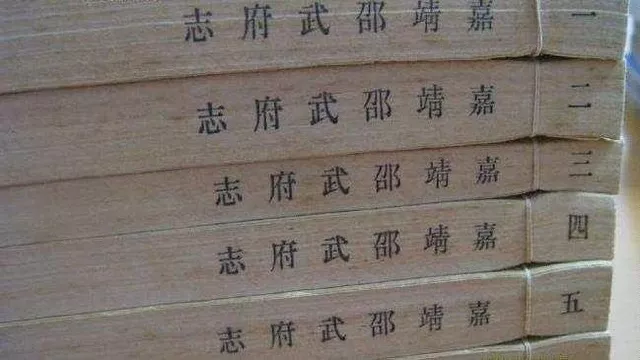 一 嘉靖邵武府志
二 嘉靖邵武府志
三 嘉靖邵武府志
四 嘉靖邵武府志
五 嘉靖邵武府志